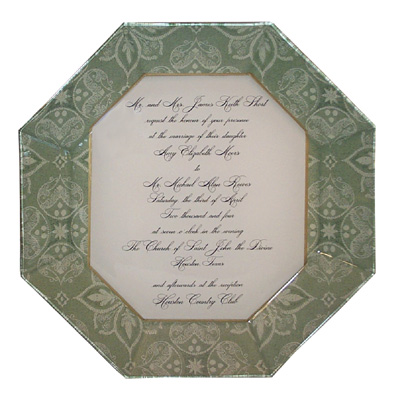 Mr. and Mrs. James Keith Short
request the honour of your presence
at the marriage of their daughter
Amy Elizabeth Moers
to
Mr. Michael Alan Reeves
Saturday, the third of April
Two thousand and four
at seven o'clock in the evening
The Church of Saint John the Divine
Houston, Texas
and afterwards at the reception
Houston Country Club